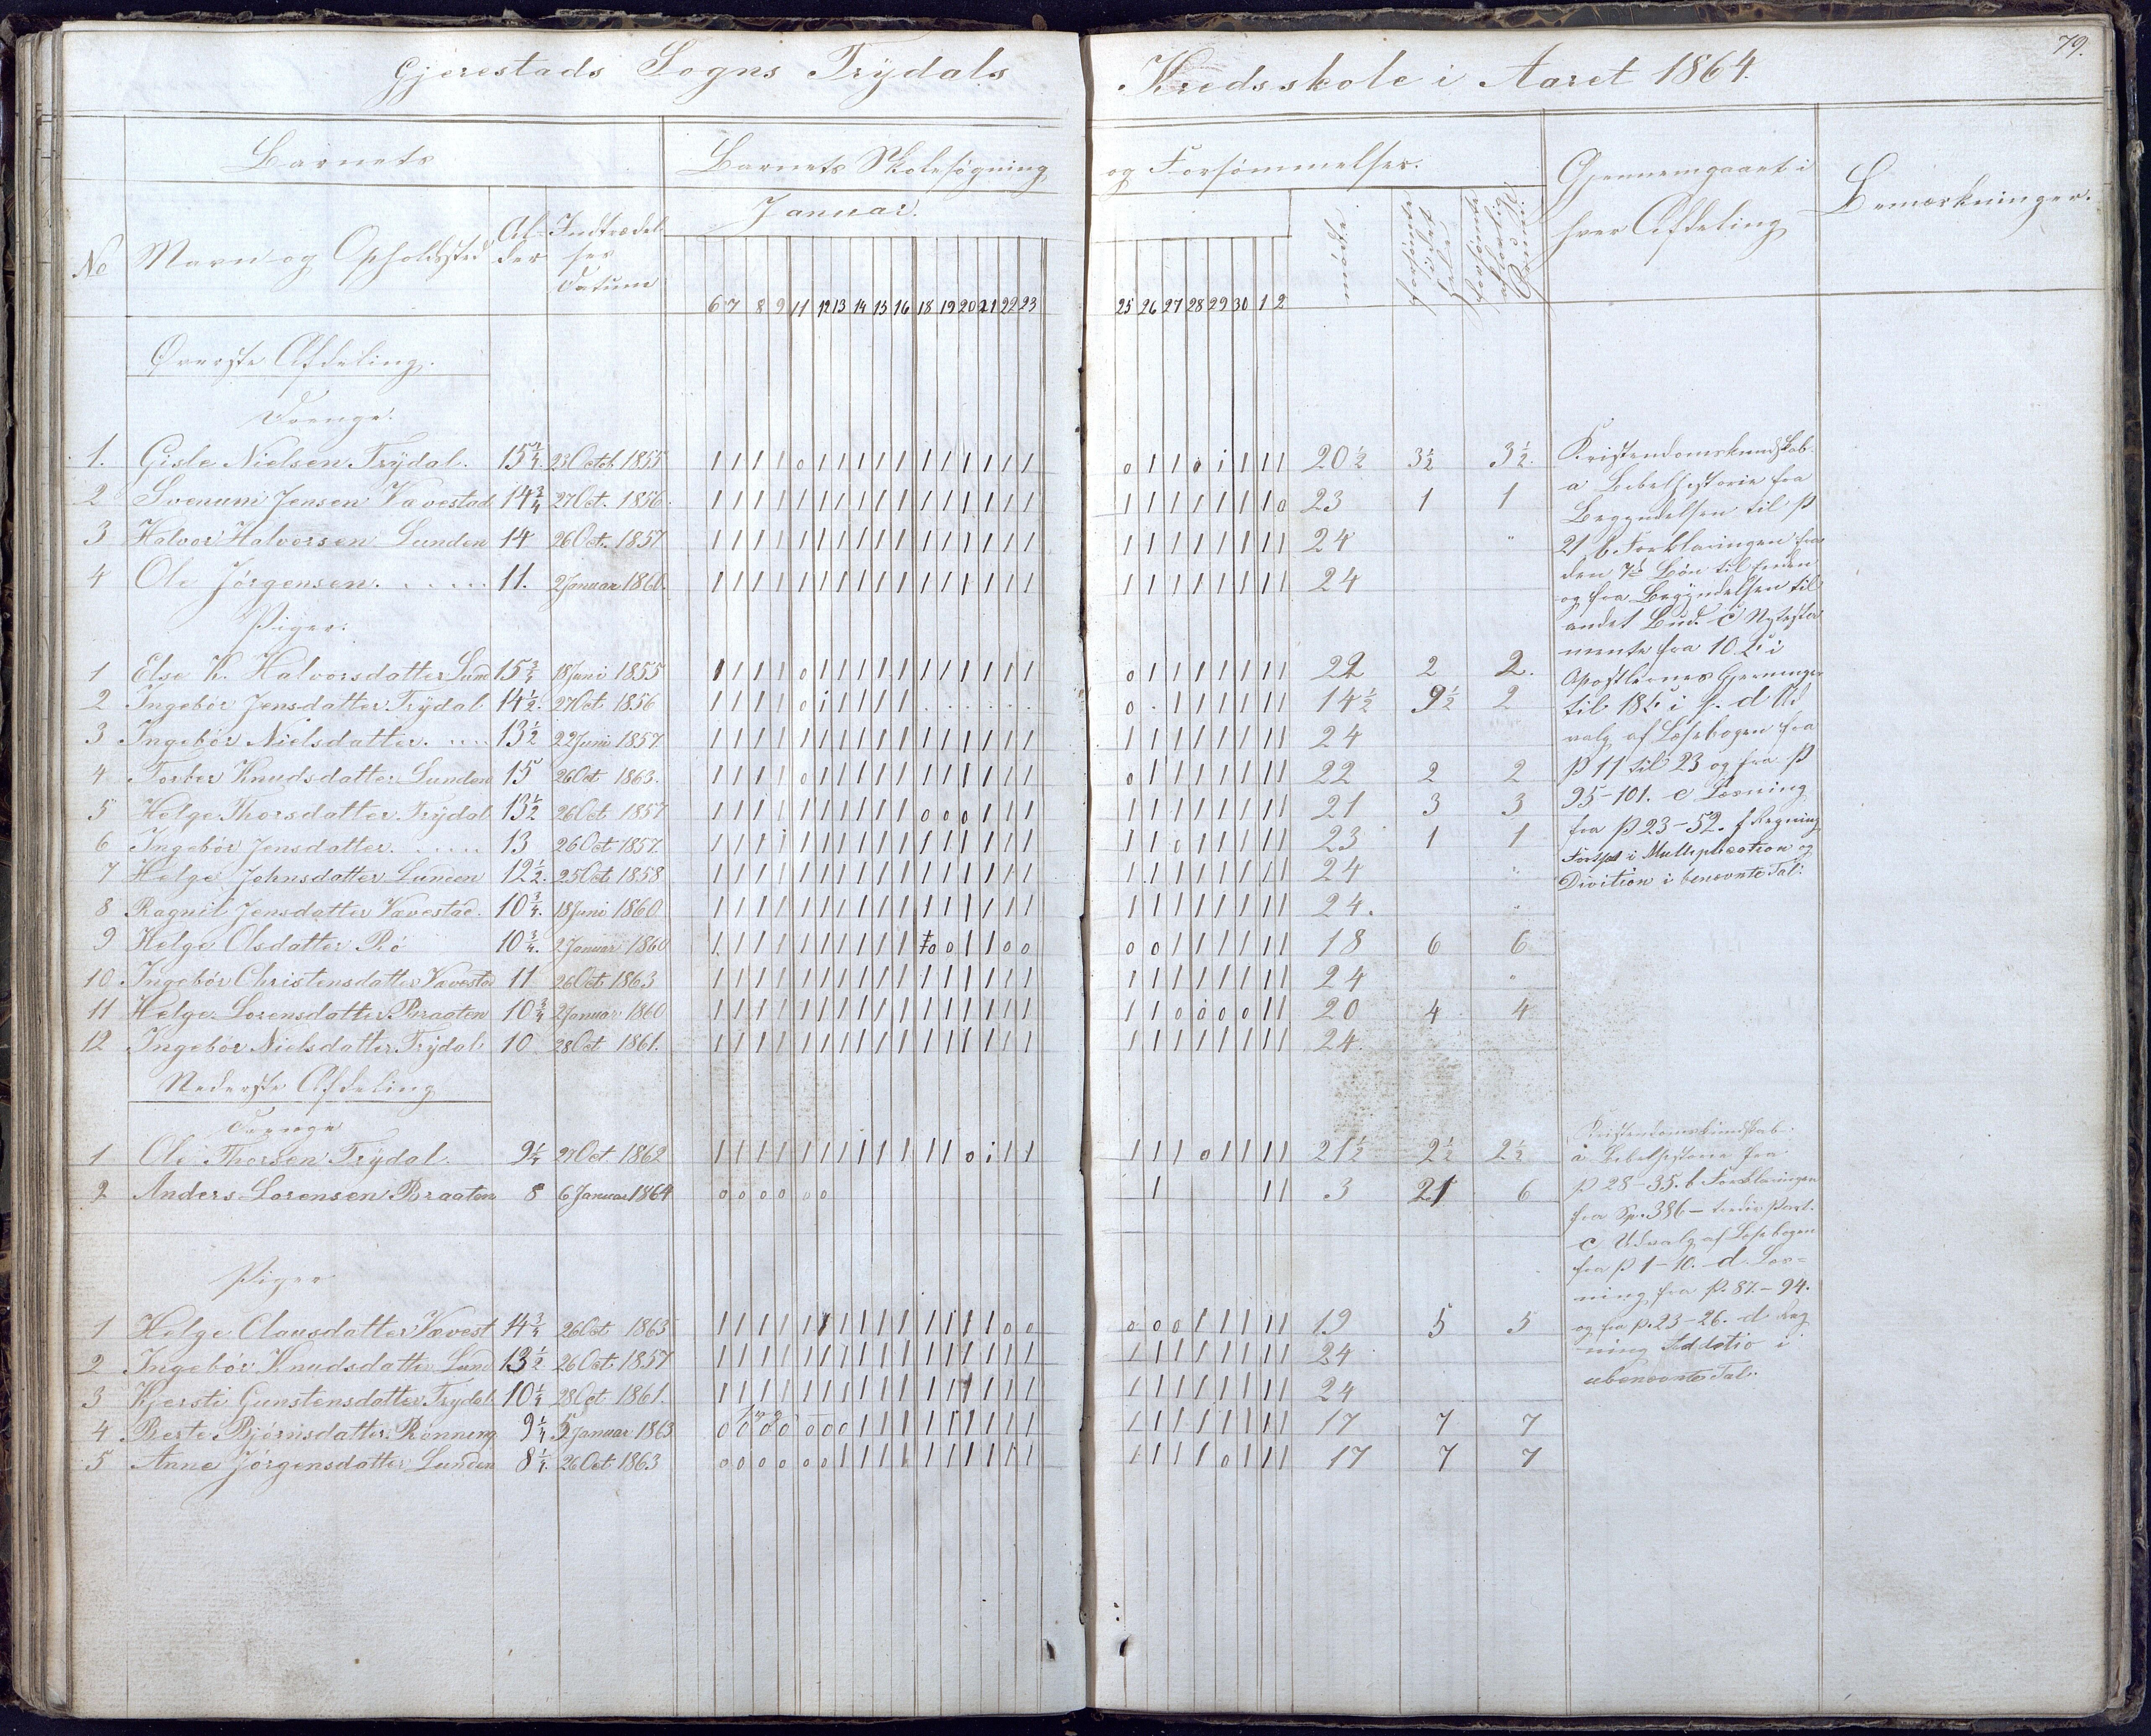 79.
Gjerestads Sogns Trydals Kredsskole i Aaret 1864.
Barnets Barnets Skolesøgning og Forsømmelser. Gjennemgaaet i hver Afdeling Bemærkninger.
No Navn og Opholdssted Al- der Indtrædel- ses Datum Januar. mødte forsømte i det Hele forsømte af lovlig Grund
6 7 8 9 11 12 13 14 15 16 18 19 20 21 22 23 25 26 27 28 29 30 1 2
Øverste Afdeling.
Drenge.
1. Gisle Nielsen Trydal. 15 3/4. 23 Octob. 1855 1 1 1 1 0 1 1 1 1 1 1 1 1 1 1 1 0 1 1 0 1 1 1 1 20 1/2 3 1/2 3 1/2.
2 Svenum Jensen Vævestad 14 3/4 27 Oct. 1856. 1 1 1 1 1 1 1 1 1 1 1 1 1 1 1 1 1 1 1 1 1 1 1 0 23 1 1
3 Halvor Halvorsen Lunden 14 26 Oct. 1857 1 1 1 1 1 1 1 1 1 1 1 1 1 1 1 1 1 1 1 1 1 1 1 1 24 "
4 Ole Jørgensen. . . . . . 11. 2 Januar 1860. 1 1 1 1 1 1 1 1 1 1 1 1 1 1 1 1 1 1 1 1 1 1 1 1 24
Piger.
1 Else K. Halvorsdatter Lund 15 3/4 18 Juni 1855 1 1 1 1 0 1 1 1 1 1 1 1 1 1 1 1 0 1 1 1 1 1 1 1 22 2 2.
2 Ingebør Jensdatter Trydal 14 1/2. 27 Oct 1856 1 1 1 1 0 i 1 1 1 1 . . . . . . 0 . 1 1 1 1 1 1 14 1/2 9 1/2 2
3 Ingebør Nielsdatter. . . . . 13 1/2 22 Juni 1857. 1 1 1 1 1 1 1 1 1 1 1 1 1 1 1 1 1 1 1 1 1 1 1 1 24
4 Torber Knudsdatter Lunden 15 26 Oct 1863. 1 1 1 1 0 1 1 1 1 1 1 1 1 1 1 1 0 1 1 1 1 1 1 1 22 2 2
5 Helge Thorsdatter Trydal 13 1/2 26 Oct 1857 1 1 1 1 1 1 1 1 1 1 0 0 0 1 1 1 1 1 1 1 1 1 1 1 21 3 3
6 Ingebør Jensdatter. . . . . . 13 26 Oct 1857. 1 1 1 1 1 1 1 1 1 1 1 1 1 1 1 1 1 1 0 1 1 1 1 1 23 1 1
7 Helge Johnsdatter Lunden 12 1/2. 25 Oct 1858 1 1 1 1 1 1 1 1 1 1 1 1 1 1 1 1 1 1 1 1 1 1 1 1 24 "
8 Ragnil Jensdatter Vævestad. 10 3/4. 18 Juni 1860. 1 1 1 1 1 1 1 1 1 1 1 1 1 1 1 1 1 1 1 1 1 1 1 1 24. "
9 Helge Olsdatter Rø 10 3/4. 2 Januar 1860 1 1 1 1 1 1 1 1 1 1 0 0 1 1 0 0 0 0 1 1 1 1 1 1 18 6 6
10. Ingebør Christensdatter Vævestad 11 26 Oct. 1863 1 1 1 1 1 1 1 1 1 1 1 1 1 1 1 1 1 1 1 1 1 1 1 1 24 "
11 Helge Lorensdatter Braaten 10 3/4 2 Januar 1860 1 1 1 1 1 1 1 1 1 1 1 1 1 1 1 1 1 1 0 0 0 0 1 1 20 4 4
12 Ingebør Nielsdatter Trydal. 10 28 Oct 1861. 1 1 1 1 1 1 1 1 1 1 1 1 1 1 1 1 1 1 1 1 1 1 1 1 24.
Kristendomskundskab.
a Bibelhistorie fra
Begyndelsen til P
21 b. Forklaringen fra
den 7de Bøn til Enden
og fra Begyndelsen til
andet Bud. C Nyteste
mente fra 10 C. i
Apostlernes Gjerninger
til 18 C. i s. d Ud
valg af Læsebogen fra
P 11 til 23 og fra P
95-101. e Læsning
fra P 23-52. f Regning
Fortsat i Multiplication og
Divition i benevnte Tal.
Nederste Afdeling
Drenge
1 Ole Thorsen Trydal. 9 1/4 27 Oct. 1862 1 1 1 1 1 1 1 1 1 1 1 1 0 i 1 1 1 1 1 0 1 1 1 1 21 1/2 2 1/2 2 1/2
2 Anders Lorensen Braaten 8 6 Januar 1864 0 0 0 0 0 0 1 1 1 3 21 6
Piger
1 Helge Clausdatter Vævest 14 3/4 26 Oct 1863 1 1 1 1 1 1 1 1 1 1 1 1 1 1 0 0 0 0 0 1 1 1 1 1 19 5 5
2 Ingebør Knudsdatter Lund 13 1/2 26 Oct. 1857 1 1 1 1 1 1 1 1 1 1 1 1 1 1 1 1 1 1 1 1 1 1 1 1 24
3 Kjersti Gunstensdatter Trydal 10 1/4 28 Oct 1861. 1 1 1 1 1 1 1 1 1 1 1 1 1 1 1 1 1 1 1 1 1 1 1 1 24
4 Berte Bjørnsdatter Rønning 9 1/4 5 Januar 1863 0 0 0 0 0 0 0 1 1 1 1 1 1 1 1 1 1 1 1 1 1 1 1 1 17 7 7
5 Anne Jørgensdatter Lunden 8 1/4. 26 Oct 1863 0 0 0 0 0 0 1 1 1 1 1 1 1 1 1 1 1 1 1 1 0 1 1 1 17 7 7
Kristendomskundskab.
a Bibelhistorie fra
P 28-35. b Forklaringen
fra Sp. 386- tredie Part.
C Udvalg af Læsebogen
fra P 1-10. d Læs-
ning fra P. 87.-94.
og fra p. 23-26. d Reg
ning Addatio i
ubenevnte Tal.